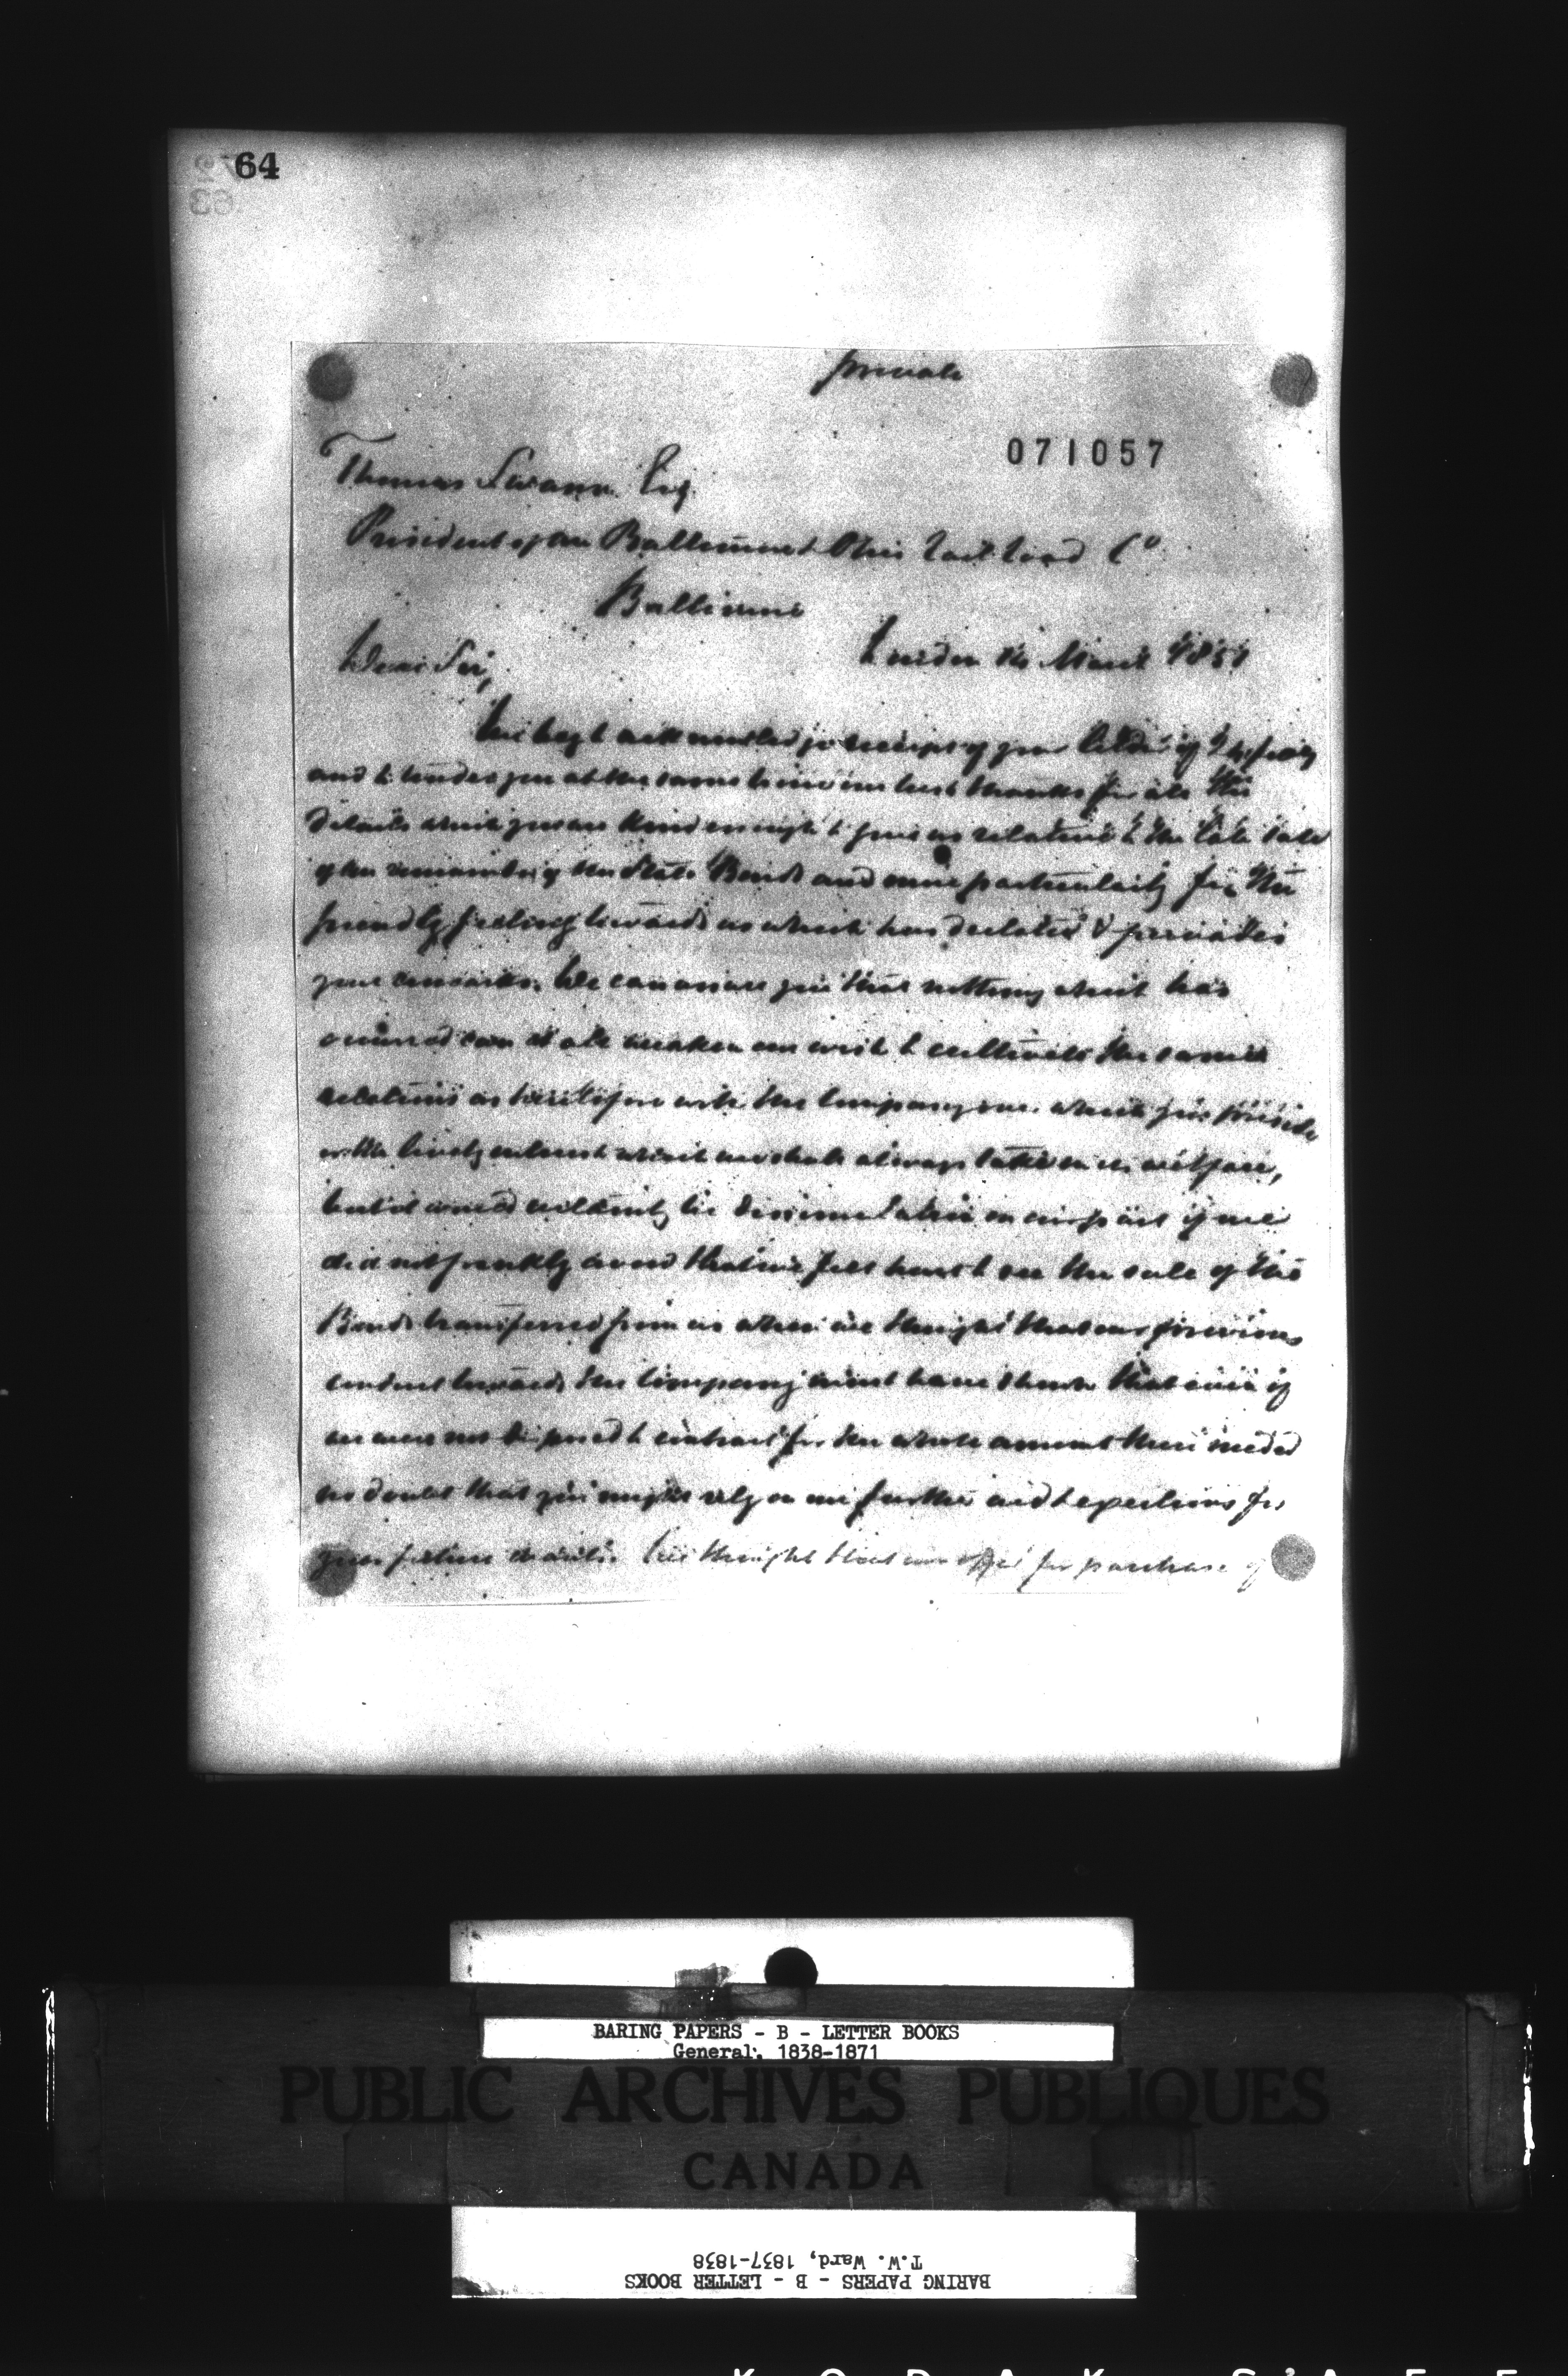 64
private
071057
Thomas Swann Esq.
President of the Baltimore & Ohio Rail Road Co.
Baltimore
London 14 March 1851
Dear Sir,
We beg to acknowledge receipt of your letter of
and to tender you at the same time our best thanks for all the
details which you are kind enough to give us relative to the late sale
of the remainder of the State Bonds and more particularly for the
friendly feeling towards us which has dictated & pervades
your remarks. We can assure you that nothing which has
occurred can at all weaken our wish to cultivate the same
relations as heretofore with the Company over which you preside
or the lively interest which we shall always take in its welfare,
but it would certainly be dissimulation on our part if we
did not frankly avow that we feel hurt to see the sale of the
Bonds transferred from us when we thought that our previous
conduct towards the Company must have shown that even if
we were not disposed to contract for the whole amount there needed
no doubt that you might rely on our further aid & exertions for
your future wants. We thought that our offer for purchase of
BARING PAPERS - B - LETTER BOOKS
General, 1838-1871
PUBLIC ARCHIVES PUBLIQUES
CANADA
BARING PAPERS - B - LETTER BOOKS
T.W. Ward, 1837-1838